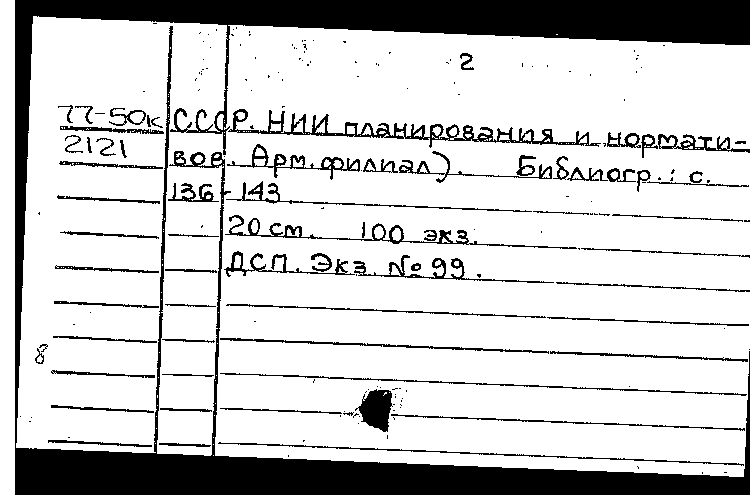 2
77-50к СССР. НИИ планирования и нормати-
2121 вов. Арм. филиал). Библиогр.: с.
136-143
20 см. 100 экз.
ДСП. Экз. № 99.
8